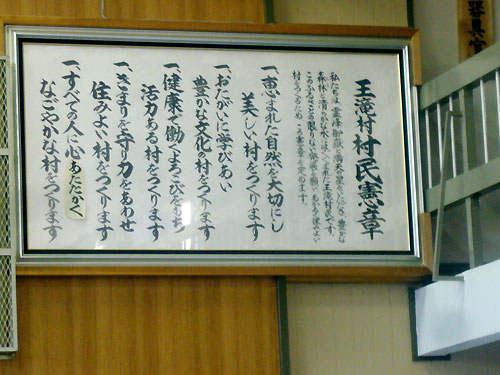 王滝村村民憲章
私たちは、霊峰御嶽
村をつくるため、この憲章を定めます。
一、恵まれた自然を大切にし
美しい村をつくります
一、おたがいに学びあい
豊かな文化の村をつくります
一、健康で働くよろこびをもち
活力ある村をつくります
一、きまりを守り力をあわせ
住みよい村をつくります
一、すべての人に心あたたかく
なごやかな村をつくります